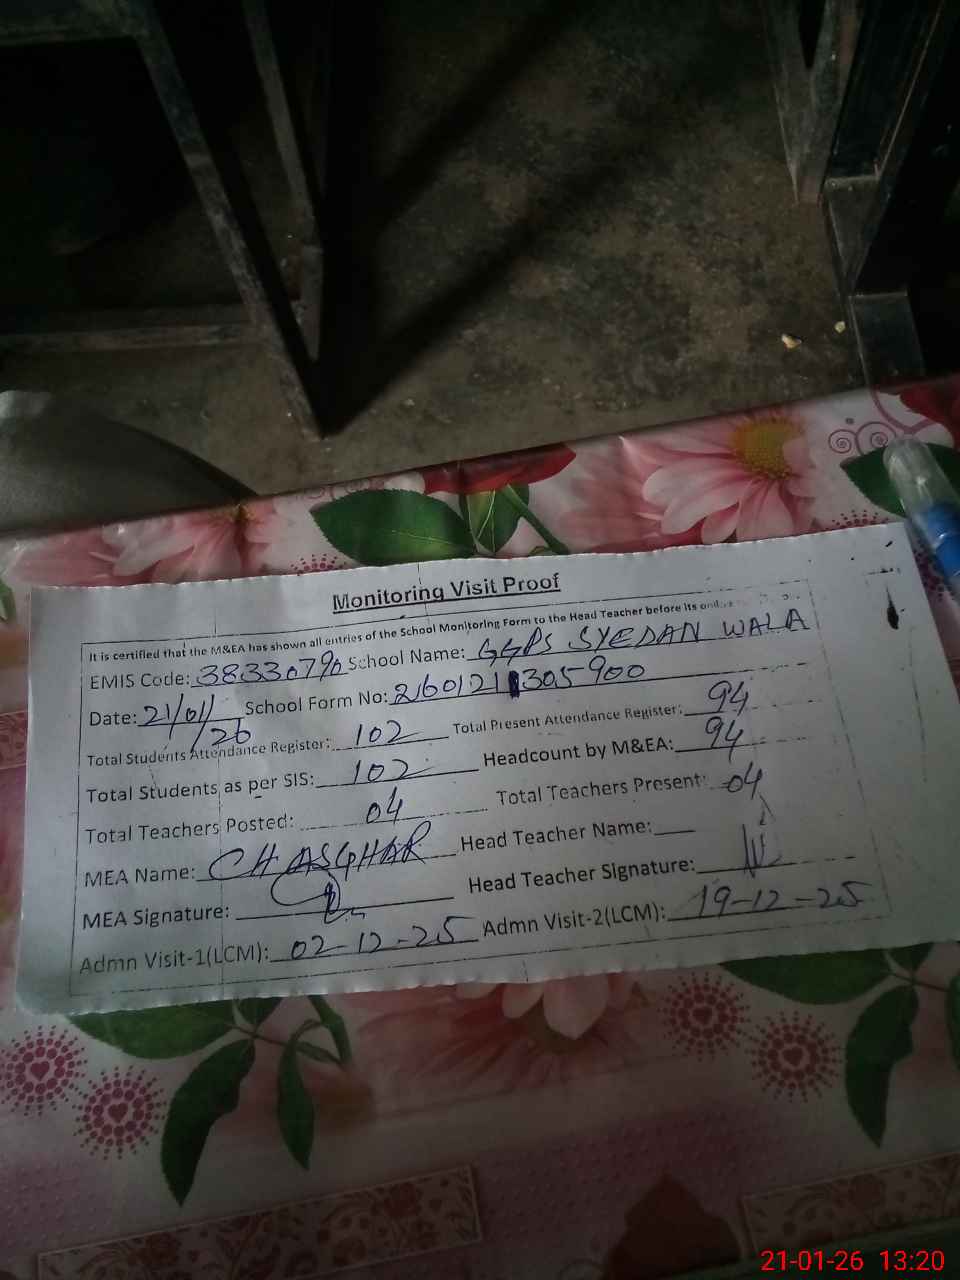 Monitoring Visit Proof
It is certified that the M&EA has shown all entries of the School Monitoring Form to the Head Teacher before its
EMIS Code: 38330790 School Name: GGPS SYEDAN WALA
Date: 21/01/26 School Form No: 2160121305900
Total Students Attendance Register: 102 Total Present Attendance Register: 94
Total Students as per SIS: 102 Headcount by M&EA: 94
Total Teachers Posted: 04 Total Teachers Present: 04
MEA Name: CH ASGHAR Head Teacher Name:
MEA Signature: Head Teacher Signature:
Admn Visit-1(LCM): 02-12-25 Admn Visit-2(LCM): 19-12-25
21-01-26 13:20